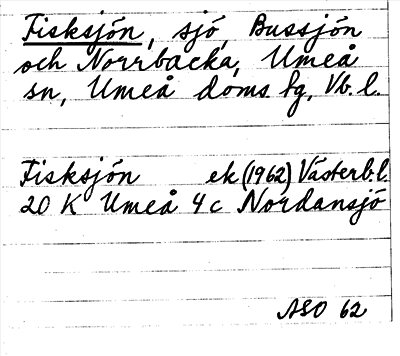 Fisksjön, sjö, Bussjön
och Norrbacka, Umeå
sn, Umeå doms. fg, Vb. l.
Fisksjön ek (1962) Västerb. l.
20 K Umeå 4 c Nordansjö
ASO 62